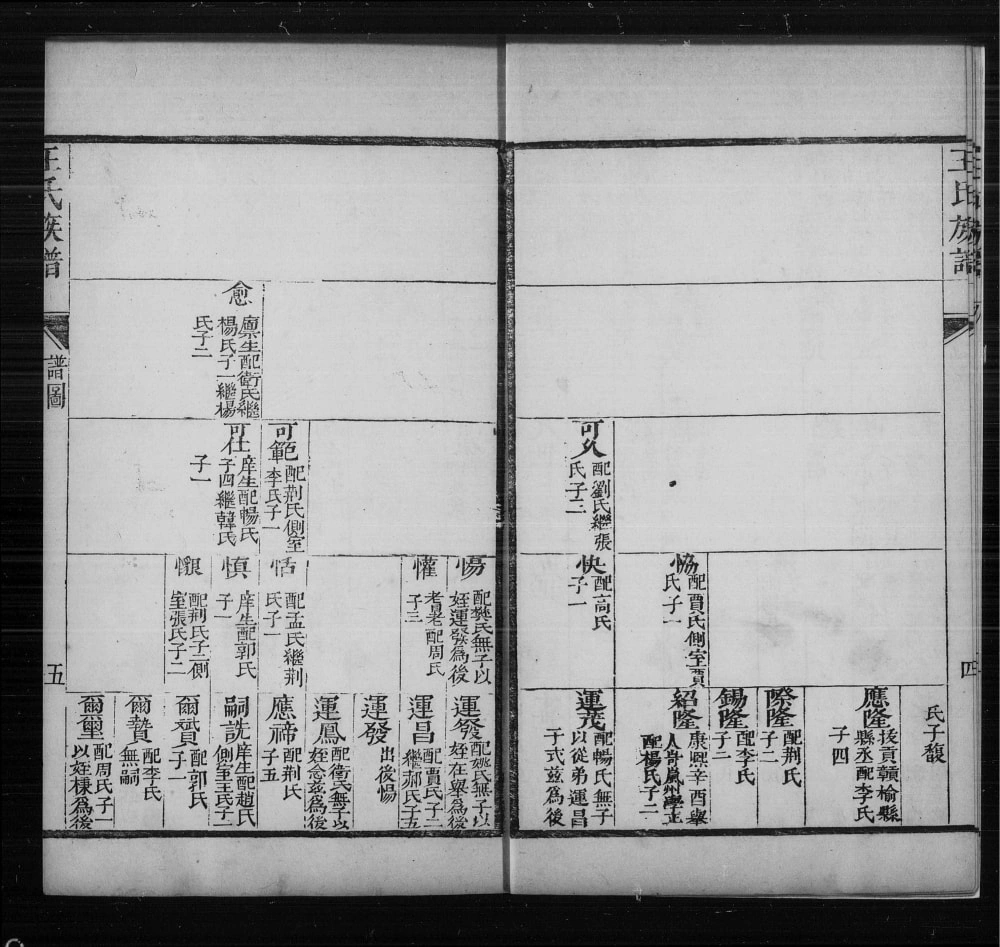 王氏族譜
四
氏子馥
應隆
拔貢贛榆縣
縣丞配李氏
子四
際隆
配荆氏
子二
錫隆
配李氏
子二
恊
配賈氏側室賈
氏子一
紹隆
康熙辛酉舉
人苛嵐州學正
配楊氏子二
可久
配劉氏繼張
氏子二
快
配高氏
子一
運茂
配暢氏無子
以從弟運昌
子式茲為後
愓
配樊氏無子以
姪運發為後
運發
配姚氏無子以
姪在舉為後
懽
耆老配周氏
子三
運昌
配賈氏子二
繼郝氏子五
運發
出後愓
運鳳
配衛氏無子以
姪念茲為後
可範
配荆氏側室
李氏子一
恬
配孟氏繼荆
氏子一
應禘
配荆氏
子五
愈
廩生配衛氏繼
楊氏子一繼楊
氏子二
可仕
庠生配暢氏
子四繼韓氏
子一
慎
庠生配郭氏
子一
嗣詵
庠生配趙氏
側室王氏子一
配荆氏子二側
室張氏子二
爾贇
配郭氏
子一
爾贄
配李氏
無嗣
爾璽
配周氏子一
以姪棣為後
王氏族譜
譜圖
五